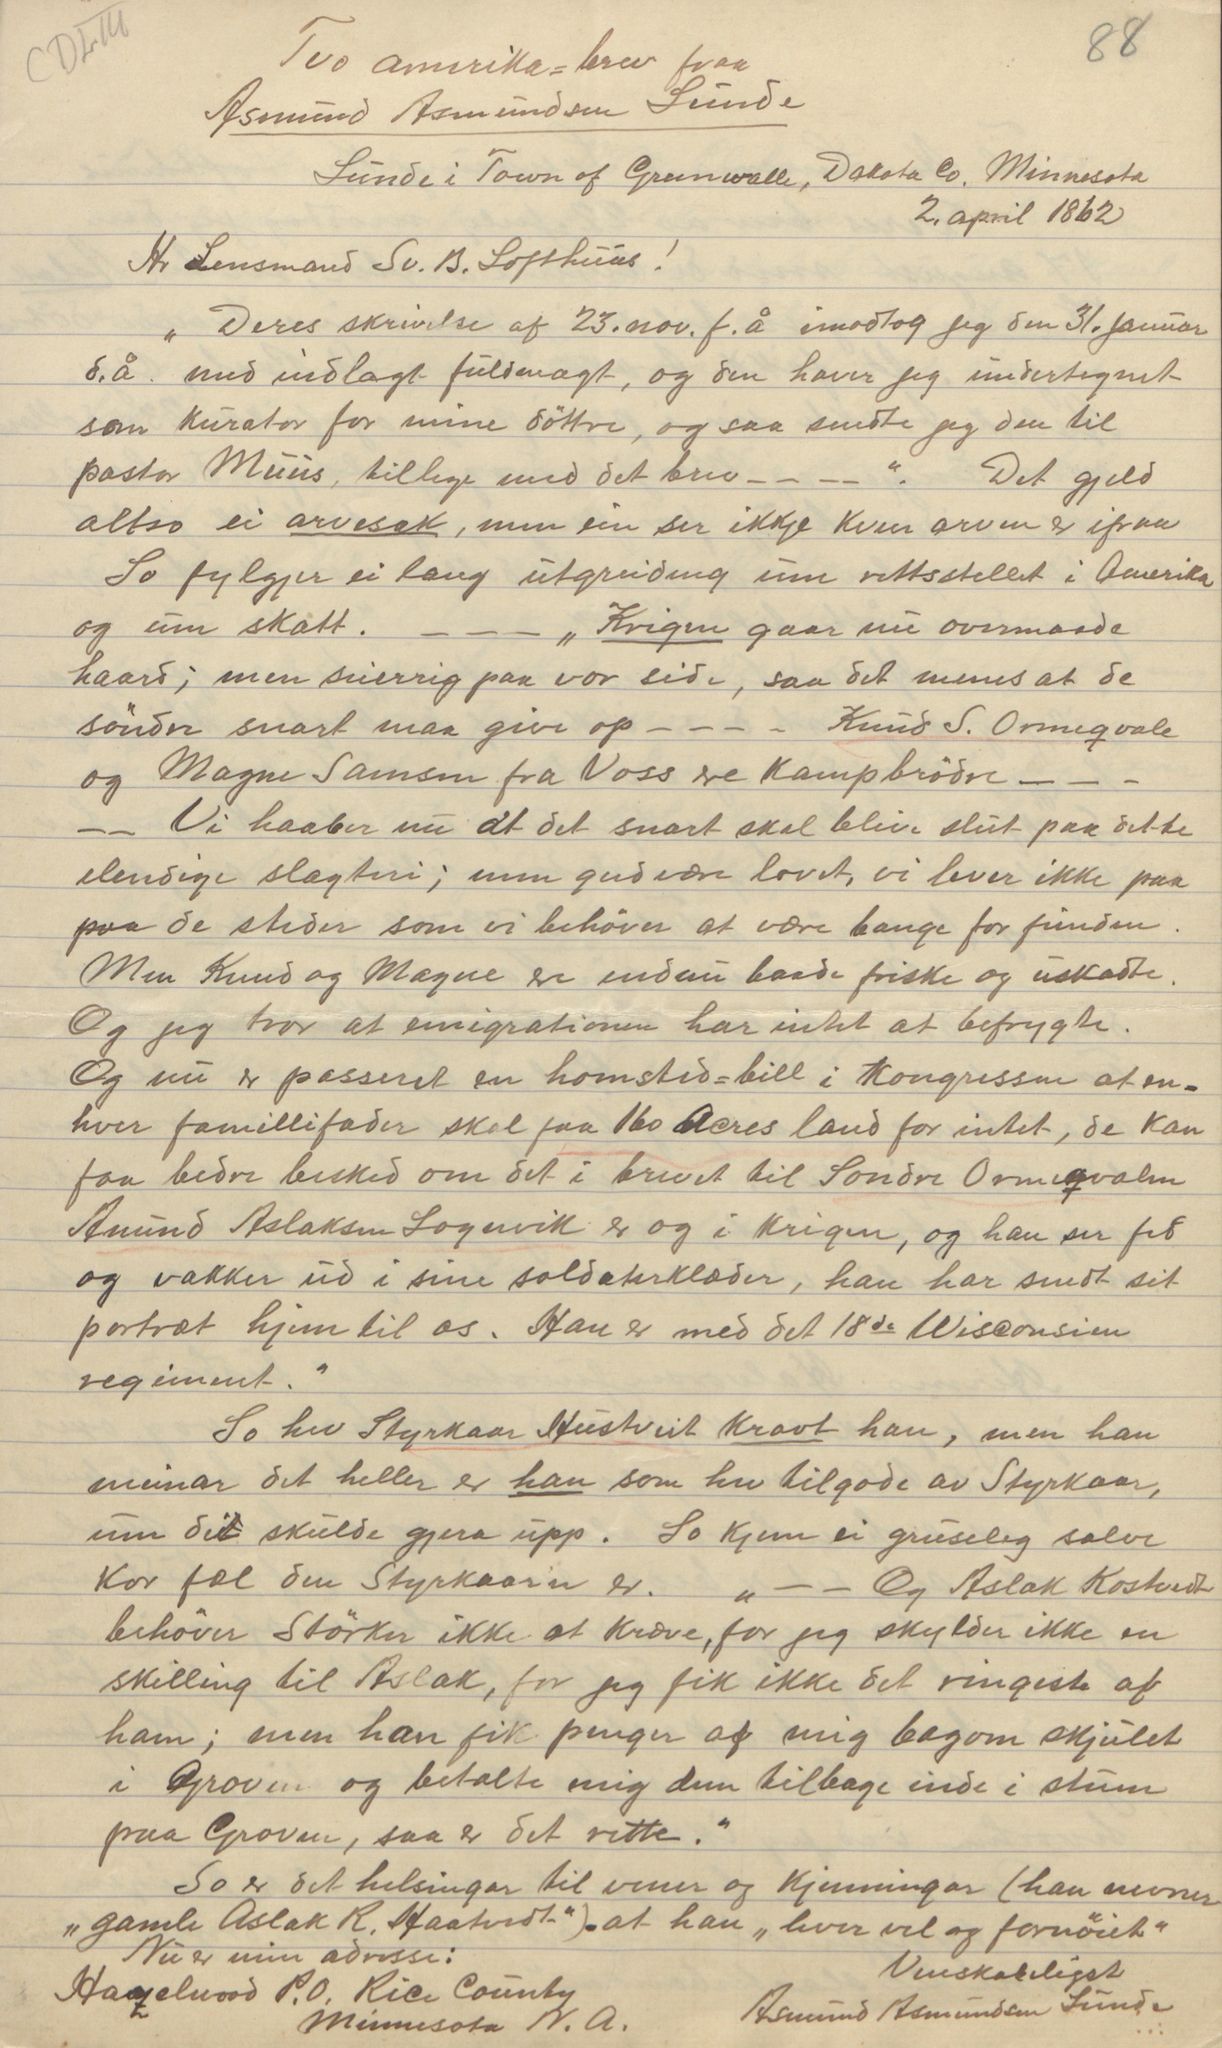 CDLIII
88
Tvo amerika=brev fraa
Asmund Asmundsen Lunde
Lunde i Town of Greenwalle, Dakota Co. Minnesota
2. april 1862
Hr Lensmand Sv. B. Lofthuus!
„Deres skrivelse af 23. nov. f. å imodtog jeg den 31. januar
d. å. med indlagt fuldmagt, og den haver jeg undertegnet
som kurator for mine döttre, og saa sendte jeg den til
pastor Muus, tillige med det brev – – – –“. Det gjeld
altso ei arvesak, men ein ser ikkje kven arven er ifraa
So fylgjer ei lang utgreiding um rettsstellet i Amerika
og um skatt. – – – – „Krigen gaar nu overmaade
haard; men sierrig paa vor side, saa det menes at de
sönder snart maa give op – – – – Knud S. Ormeqvale
og Magne Samsen fra Voss ere Kampbrödre – – –
– – Vi haaber nu at det snart skal blive slut paa dette
elendige slagteri; men gud være lovet, vi lever ikke paa
paa de steder som vi behöver at være bange for fienden.
Men Knud og Magne ere endnu baade friske og uskadte.
Og jeg tror at emigrationen har intet at befrygte.
Og nu er passeret en homsted=bill i Kongressen at en=
hver famillifader skal faa 160 Acres land for intet, de kan
faa bedre besked om det i brevet til Sondre Ormeqvalen
Anund Aslaksen Logervik er og i krigen, og han ser fed
og vakker ud i sine soldaterklæder, han har sendt sit
portræt hjem til os. Han er med det 18de Wisconsien
regiment.“
So hev Styrkaar Hustveit kravt han, men han
meinar det heller er han som hev tilgode av Styrkaar,
um dei skulde gjera upp. So kjem ei gruseleg salve
kor fæl den Styrkaar'n er. „ – – – Og Aslak Kostvedt
behöver Störker ikke at kræve, for jeg skylder ikke en
skilling til Aslak, for jeg fik ikke det ringeste af
ham; men han fik penger af mig bagom skjulet
i Groven og betalte mig dem tilbage inde i stuen
paa Groven, saa er det rette.“
So er det helsingar til vener og kjenningar (han nevner
„gamle Aslak R. Haatvedt“). at han „lever vel og fornöiet“
Nu er min adresse:
Hazelwood P.O. Rice County
Minnesota N. A.
Venskabeligst
Asmund Asmundsen Lunde